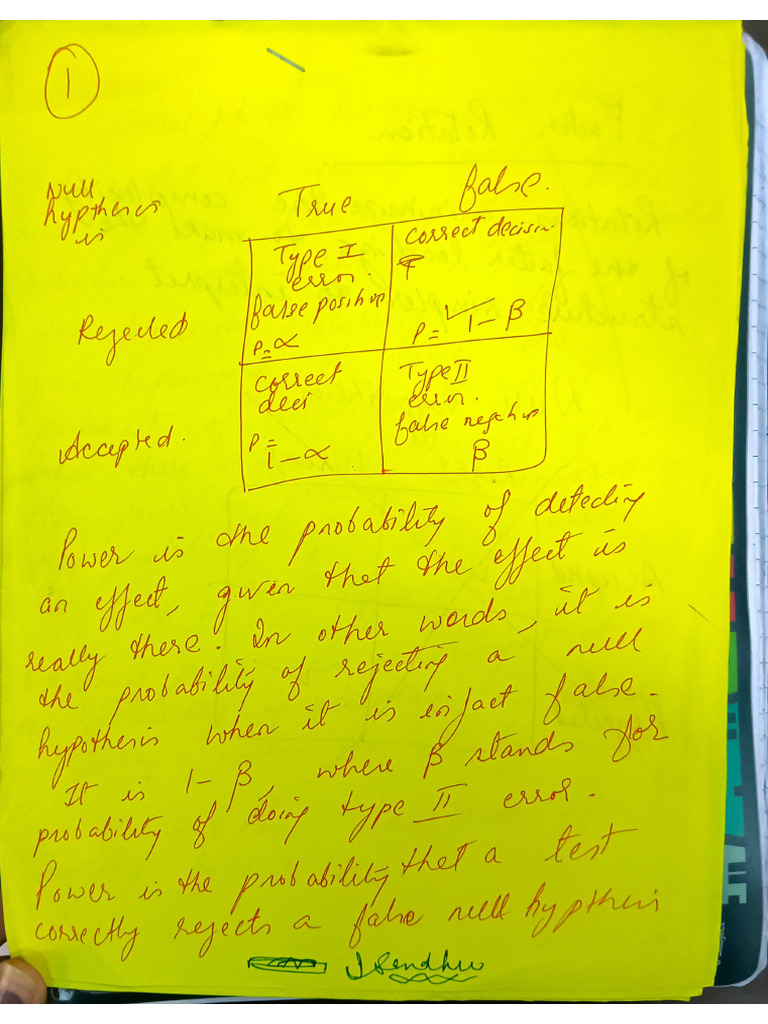 1
Null
hypthesis
is
True false.
Rejected
Type I
error.
false positive
P=α
correct decision.
P= 1-β
Accepted.
correct
deci
P=
1-α
Type II
error.
false negative
β
Power is the probability of detecting
an effect, given that the effect is
really there. In other words, it is
the probability of rejecting a null
hypothesis when it is infact false.
It is 1-β, where β stands for
probability of doing type II error.
Power is the probability that a test
correctly rejects a false null hypthesis